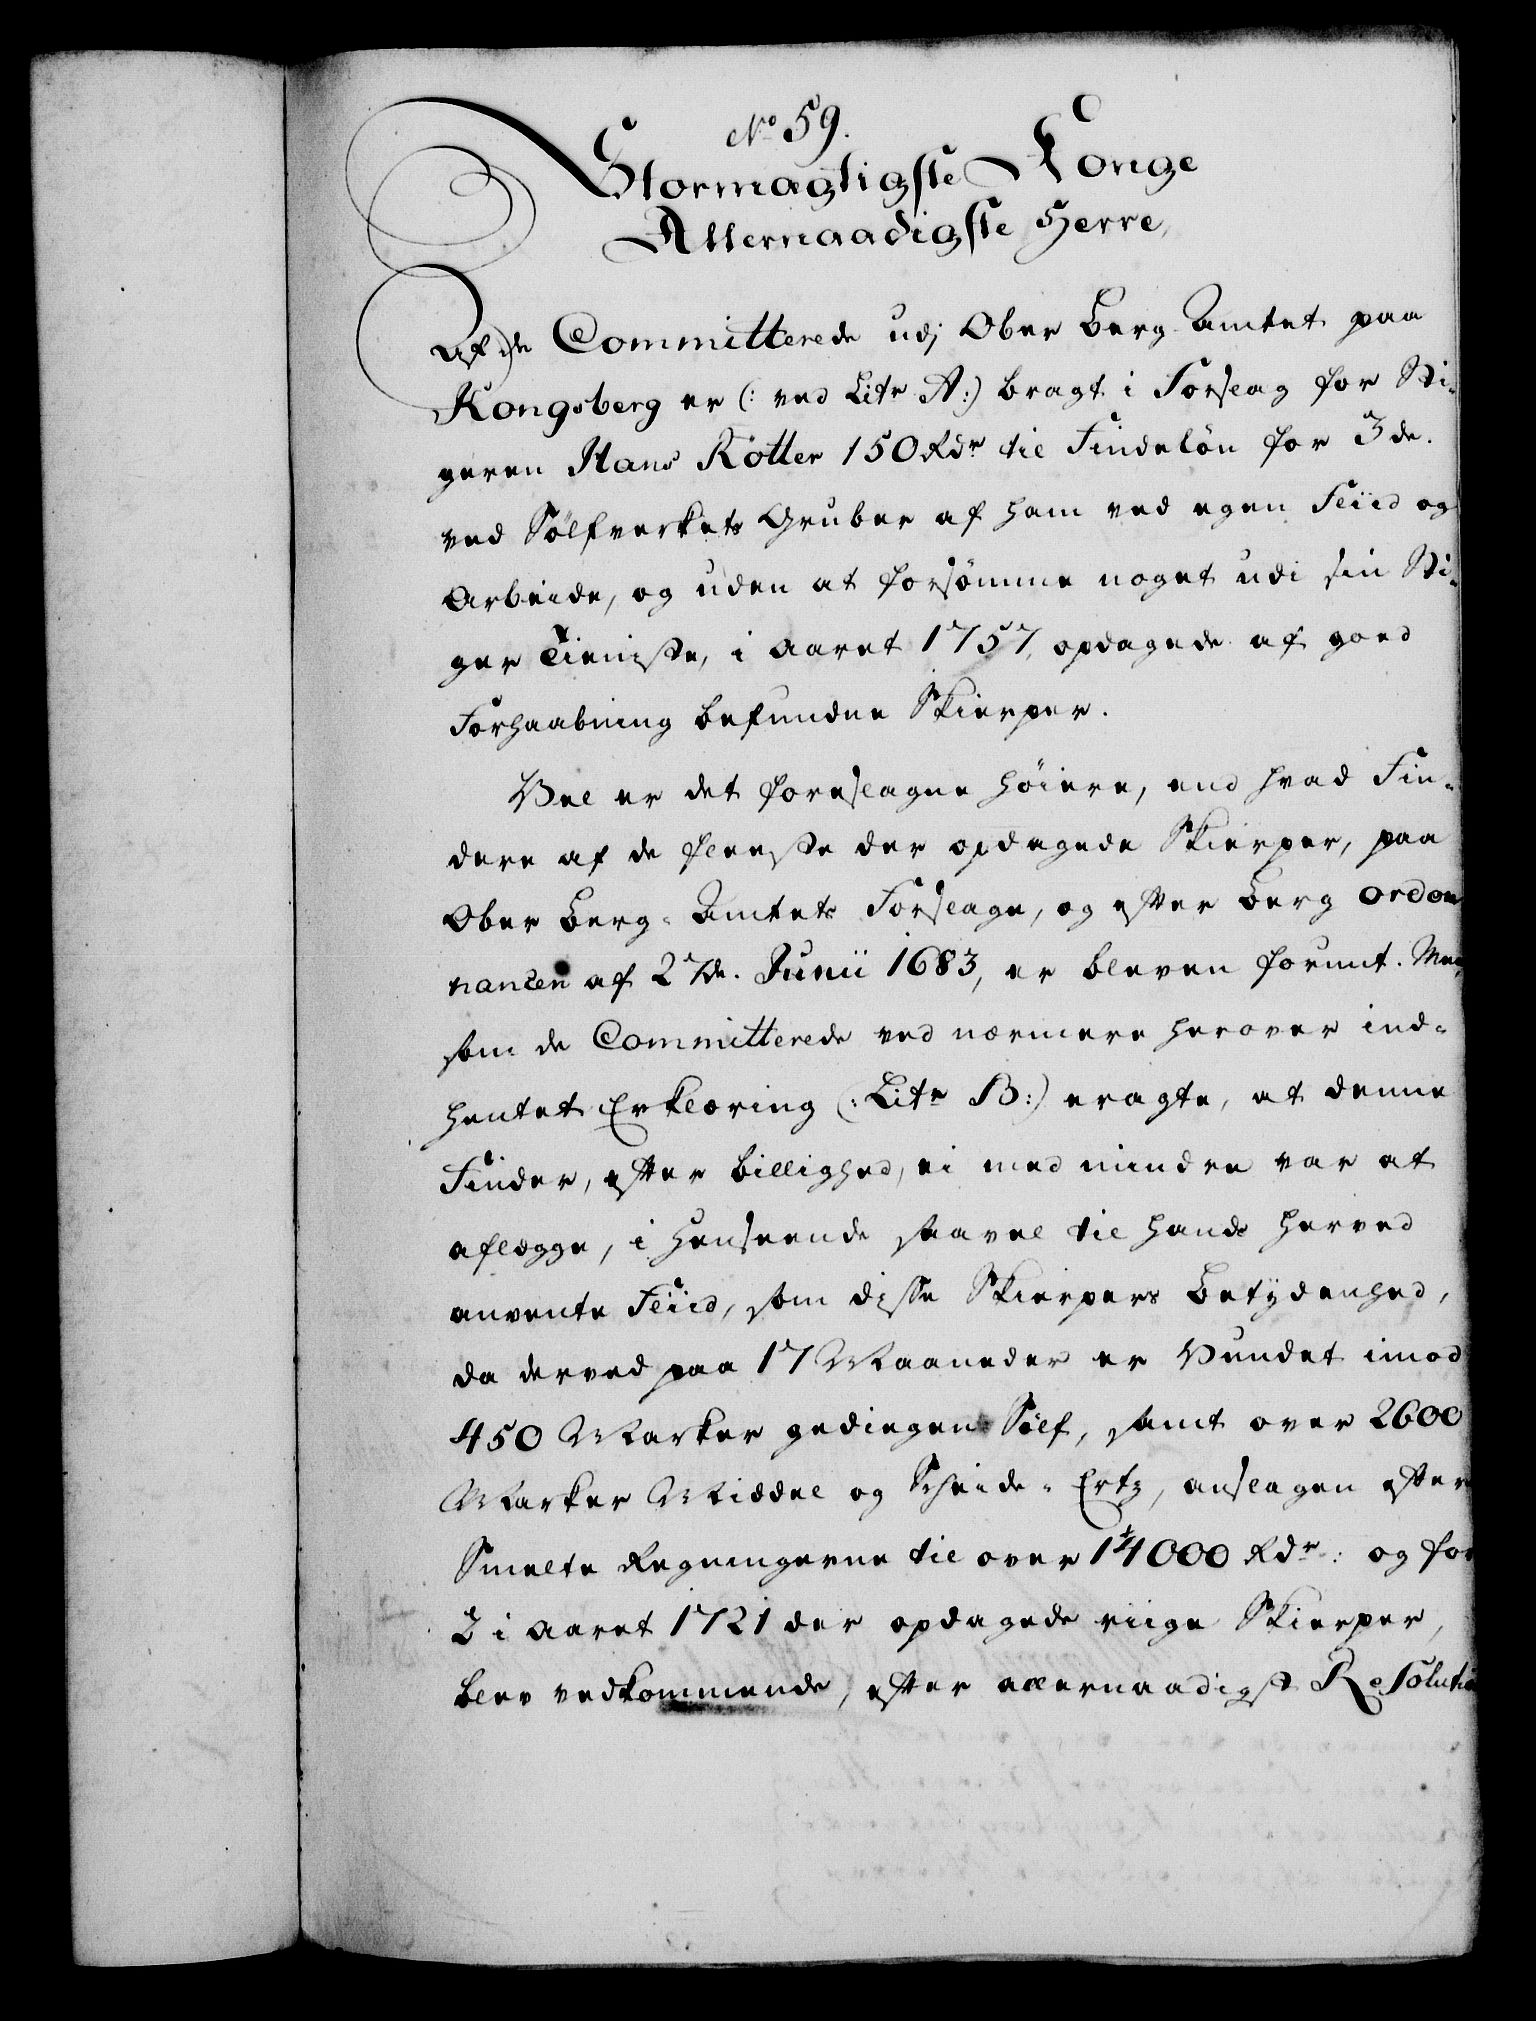 No 59.
Stormagtigste Konge
Allernaadigste Herre,
Af de Committerede udj Ober Berg-Amtet paa
Kongsberg er (: ved Litr A:) bragt i Forslag for Sti-
geren Hans Kötter 150 Rdr til Findelön for 3de
ved Sölfverkets Gruber af ham ved egen Fliid og
Arbeide, og uden at forsömme noget udi sin Sti-
ger Tieniste, i Aaret 1757, opdagede af goed
Forhaabning befundne Skierper.
Vel er det foreslagne höiere, end hvad Fin-
dere af de fleeste der opdagede Skierper, paa
Ober Berg-Amtets Forslage, og efter Berg Ordon
nancen af 27de Junii 1683, er bleven forunt. Men
som de Committerede ved nærmere herover ind-
hentet Erklæring (: Litr B:) eragte, at denne
Finder, efter billighed, ei med mindre var at
aflægge, i Henseende saavel til hands herved
anvente Fliid, som disse Skierpers Betÿdenhed,
da derved paa 17 Maaneder er Vundet imod
450 Marker gediegen Sölf, samt over 2600
Marker Middel og Scheide-Ertz, anslagen efter
Smelte Regningerne til over 14000 Rdr: og for
2 i Aaret 1721 der opdagede riige Skierper,
blev vedkommende, efter allernaadigst Resolution